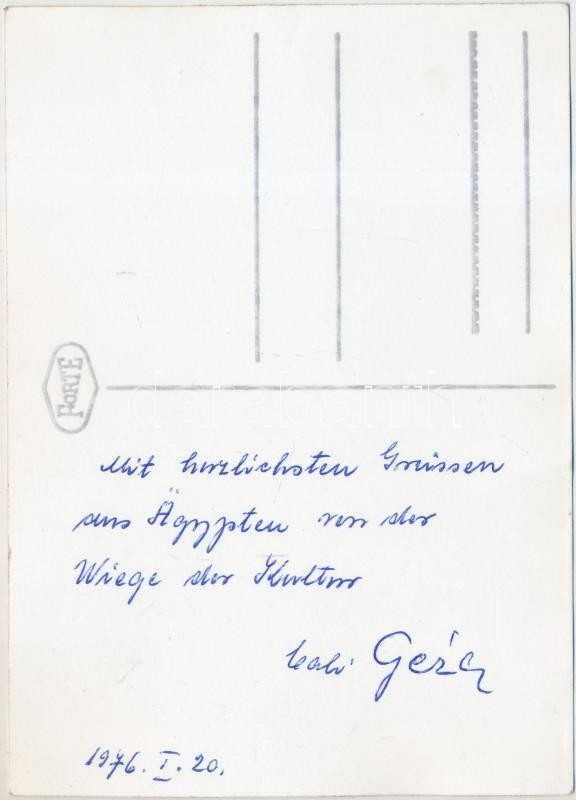 FORTE
darabanth
Mit herzlichsten Grüssen
aus Ägypten von der
Wiege der Kultur
Géza
1976. I. 20.